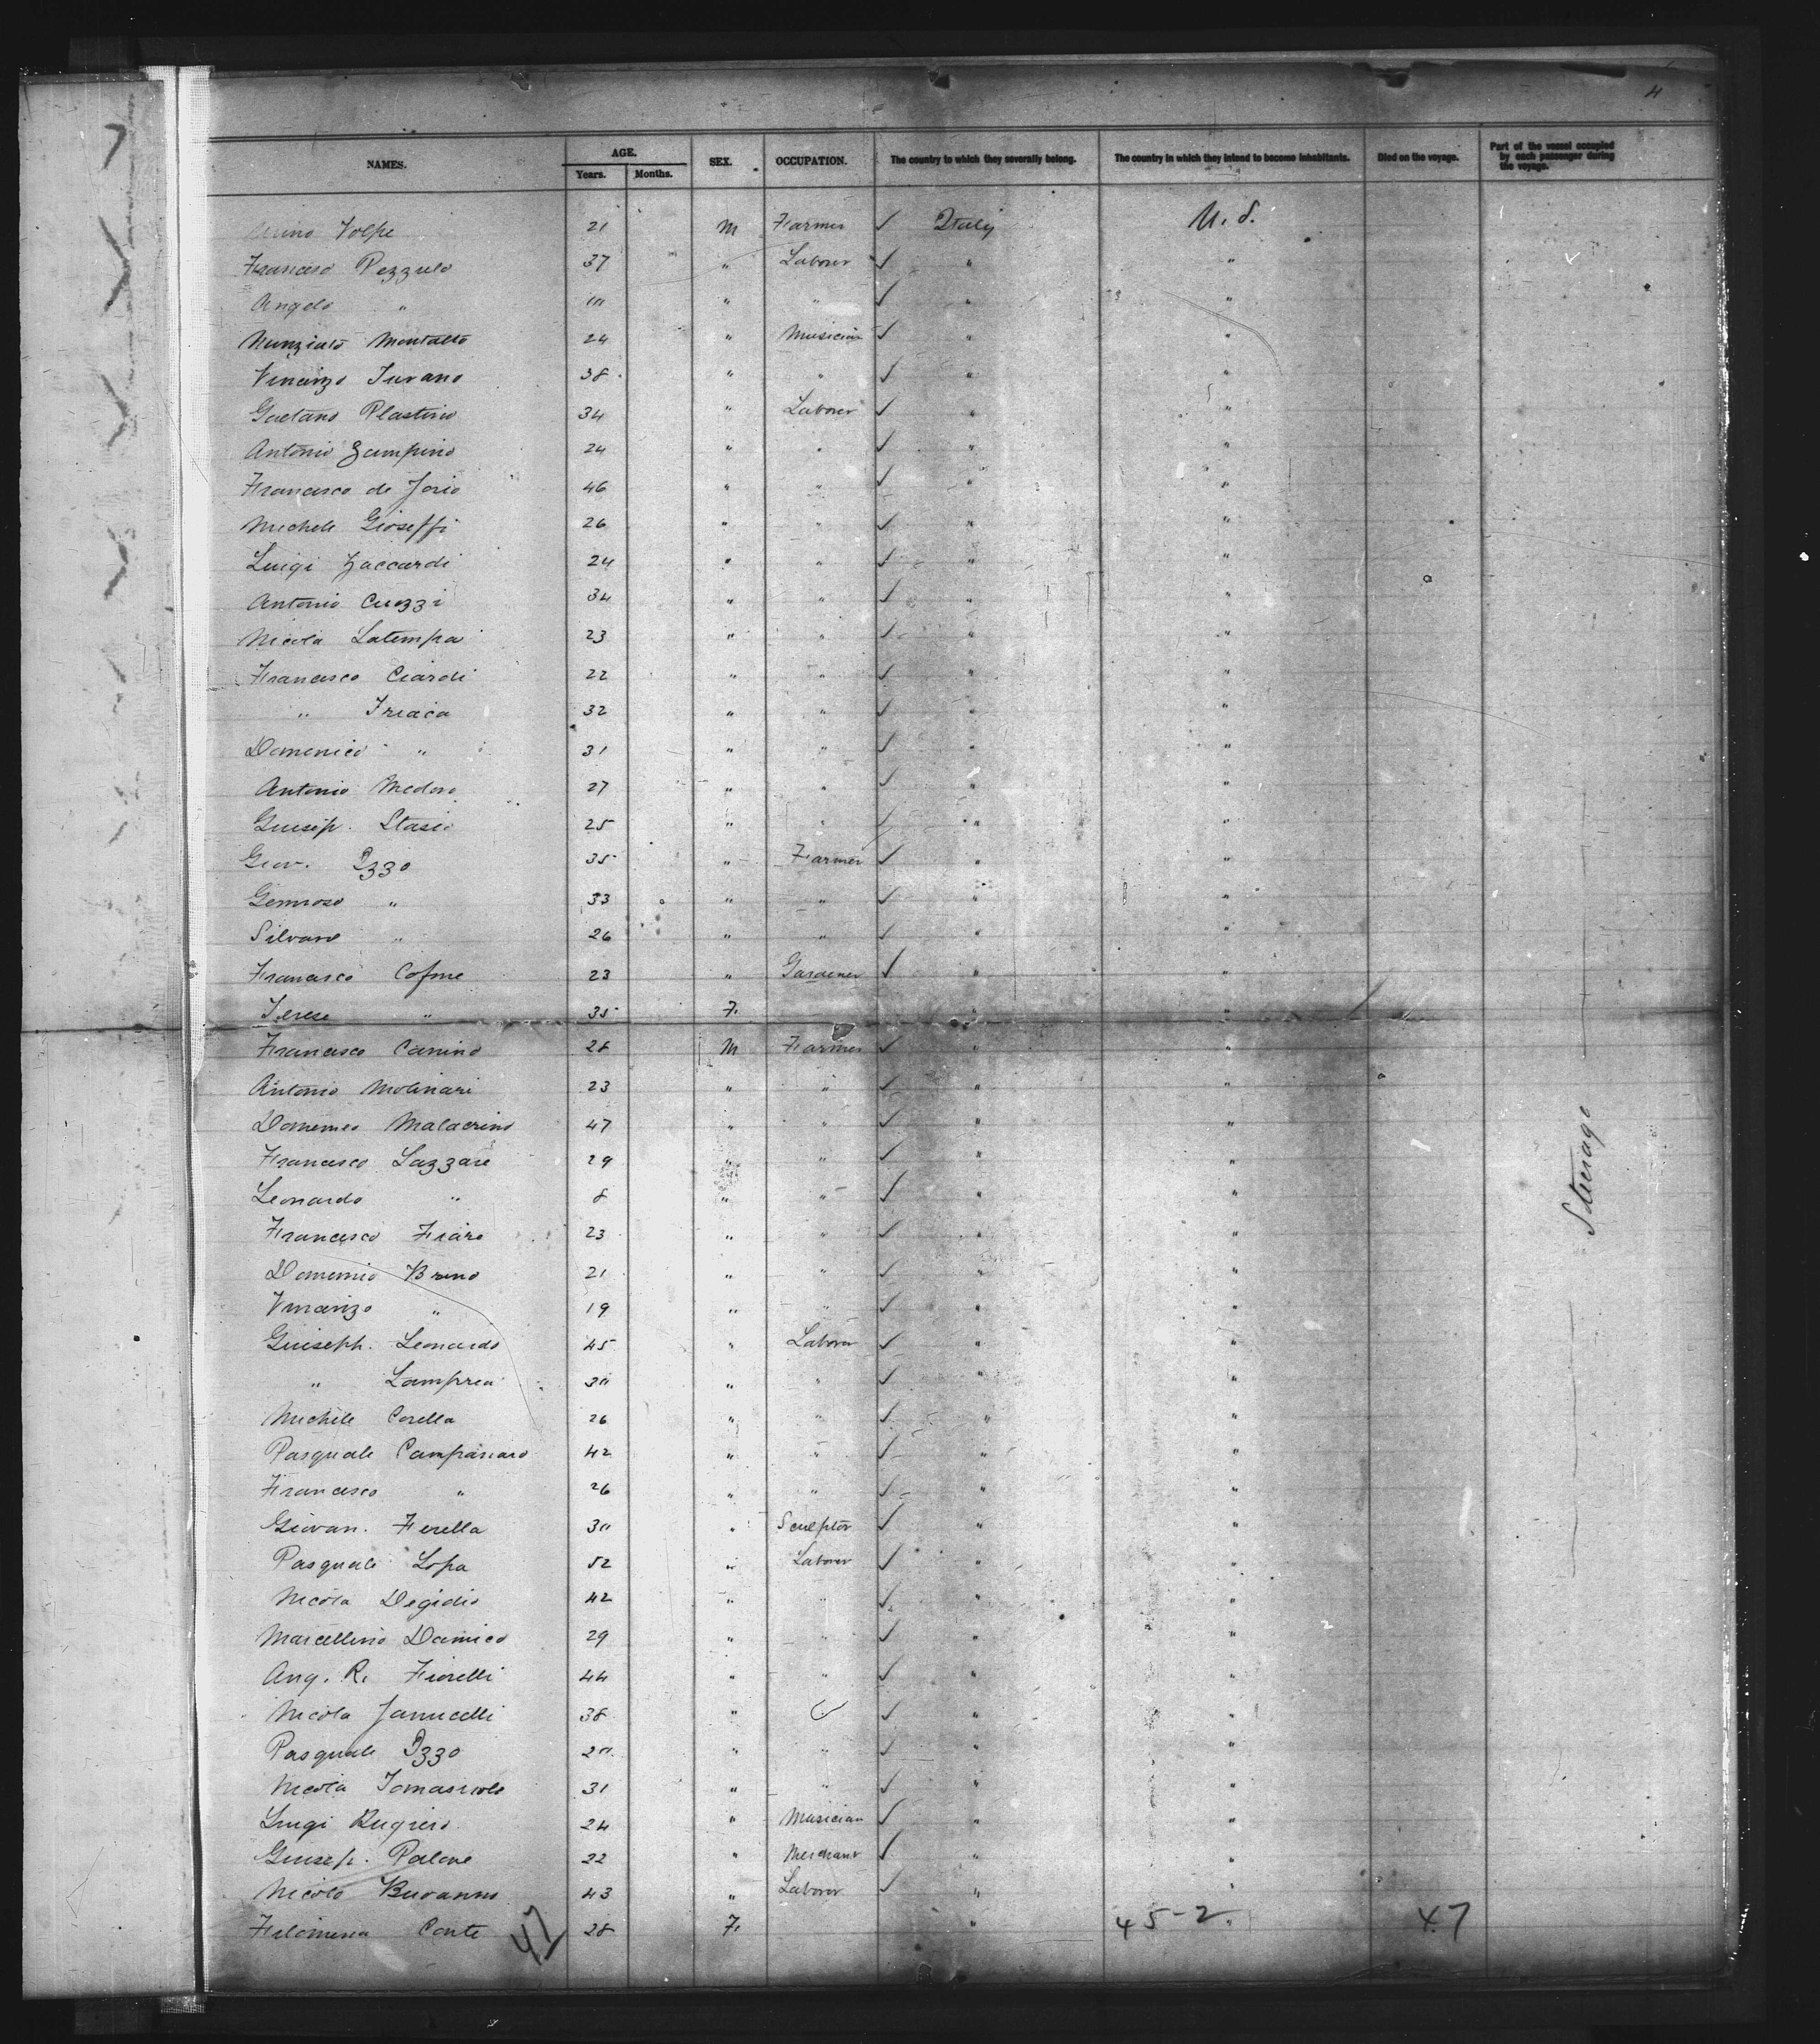 4
NAMES. AGE. SEX. OCCUPATION. The country to which they severally belong. The country in which they intend to become inhabitants. Died on the voyage. Part of the vessel occupied by each passenger during the voyage.
Years. Months.
Volpe 21 M Farmer ✓ Italy U. S.
Francisco Pezzulo 37 " Laborer ✓ " "
Angelo " 10 " " ✓ " "
Nunziato Montalto 24 " Musician ✓ " "
Vincenzo Turano 38 " " ✓ " "
Gaetano Plastino 34 " Laborer ✓ " "
Antonio Zampino 24 " " ✓ " "
Francesco de Jorio 46 " " ✓ " "
Michele Gioseffi 26 " " ✓ " "
Luigi Zaccardi 24 " " ✓ " "
Antonio Cuozzi 34 " " ✓ " "
Nicola Latempa 23 " " ✓ " "
Francesco Ciardi 22 " " ✓ " "
" Triaca 32 " " ✓ " "
Domenico " 31 " " ✓ " "
Antonio Medoro 27 " " ✓ " "
Giusep. Stasio 25 " " ✓ " "
Giov. Izzo 35 " Farmer ✓ " "
Generoso " 33 " " ✓ " "
Silvano " 26 " " ✓ " "
Francesco 23 " Gardener ✓ " "
Terese " 35 F. " "
Francesco Canino 28 M Farmer ✓ " "
Antonio Molinari 23 " " ✓ " "
Domenico Malacrino 47 " " ✓ " "
Francesco Lazzare 29 " " ✓ " "
Leonardo " 8 " " ✓ " "
Francesco 23 " " ✓ " "
Domenico Bruno 21 " " ✓ " "
Vincenzo " 19 " " ✓ " "
Giuseph. Leonardo 45 " Laborer ✓ " "
" Lamprea 30 " " ✓ " "
Michele Corella 26 " " ✓ " "
Pasquale Campanaro 42 " " ✓ " "
Francesco " 26 " " ✓ " "
Giovan. Ferella 30 " Sculptor ✓ " "
Pasquale Lopa 52 " Laborer ✓ " "
Nicola Degidio 42 " " ✓ " "
Marcellino Damico 29 " " ✓ " "
Ang. R. Fiorelli 44 " " ✓ " "
Nicola Janucelli 38 " " ✓ " "
Pasquale Izzo 20 " " ✓ " "
Nicola 31 " " ✓ " "
Luigi Rugiero 24 " Musician ✓ " "
Giusep. Palone 22 " Merchant ✓ " "
Nicolo 43 " Laborer ✓ " "
Filomena Conte 28 F. " "
47 45-2 47
Steerage